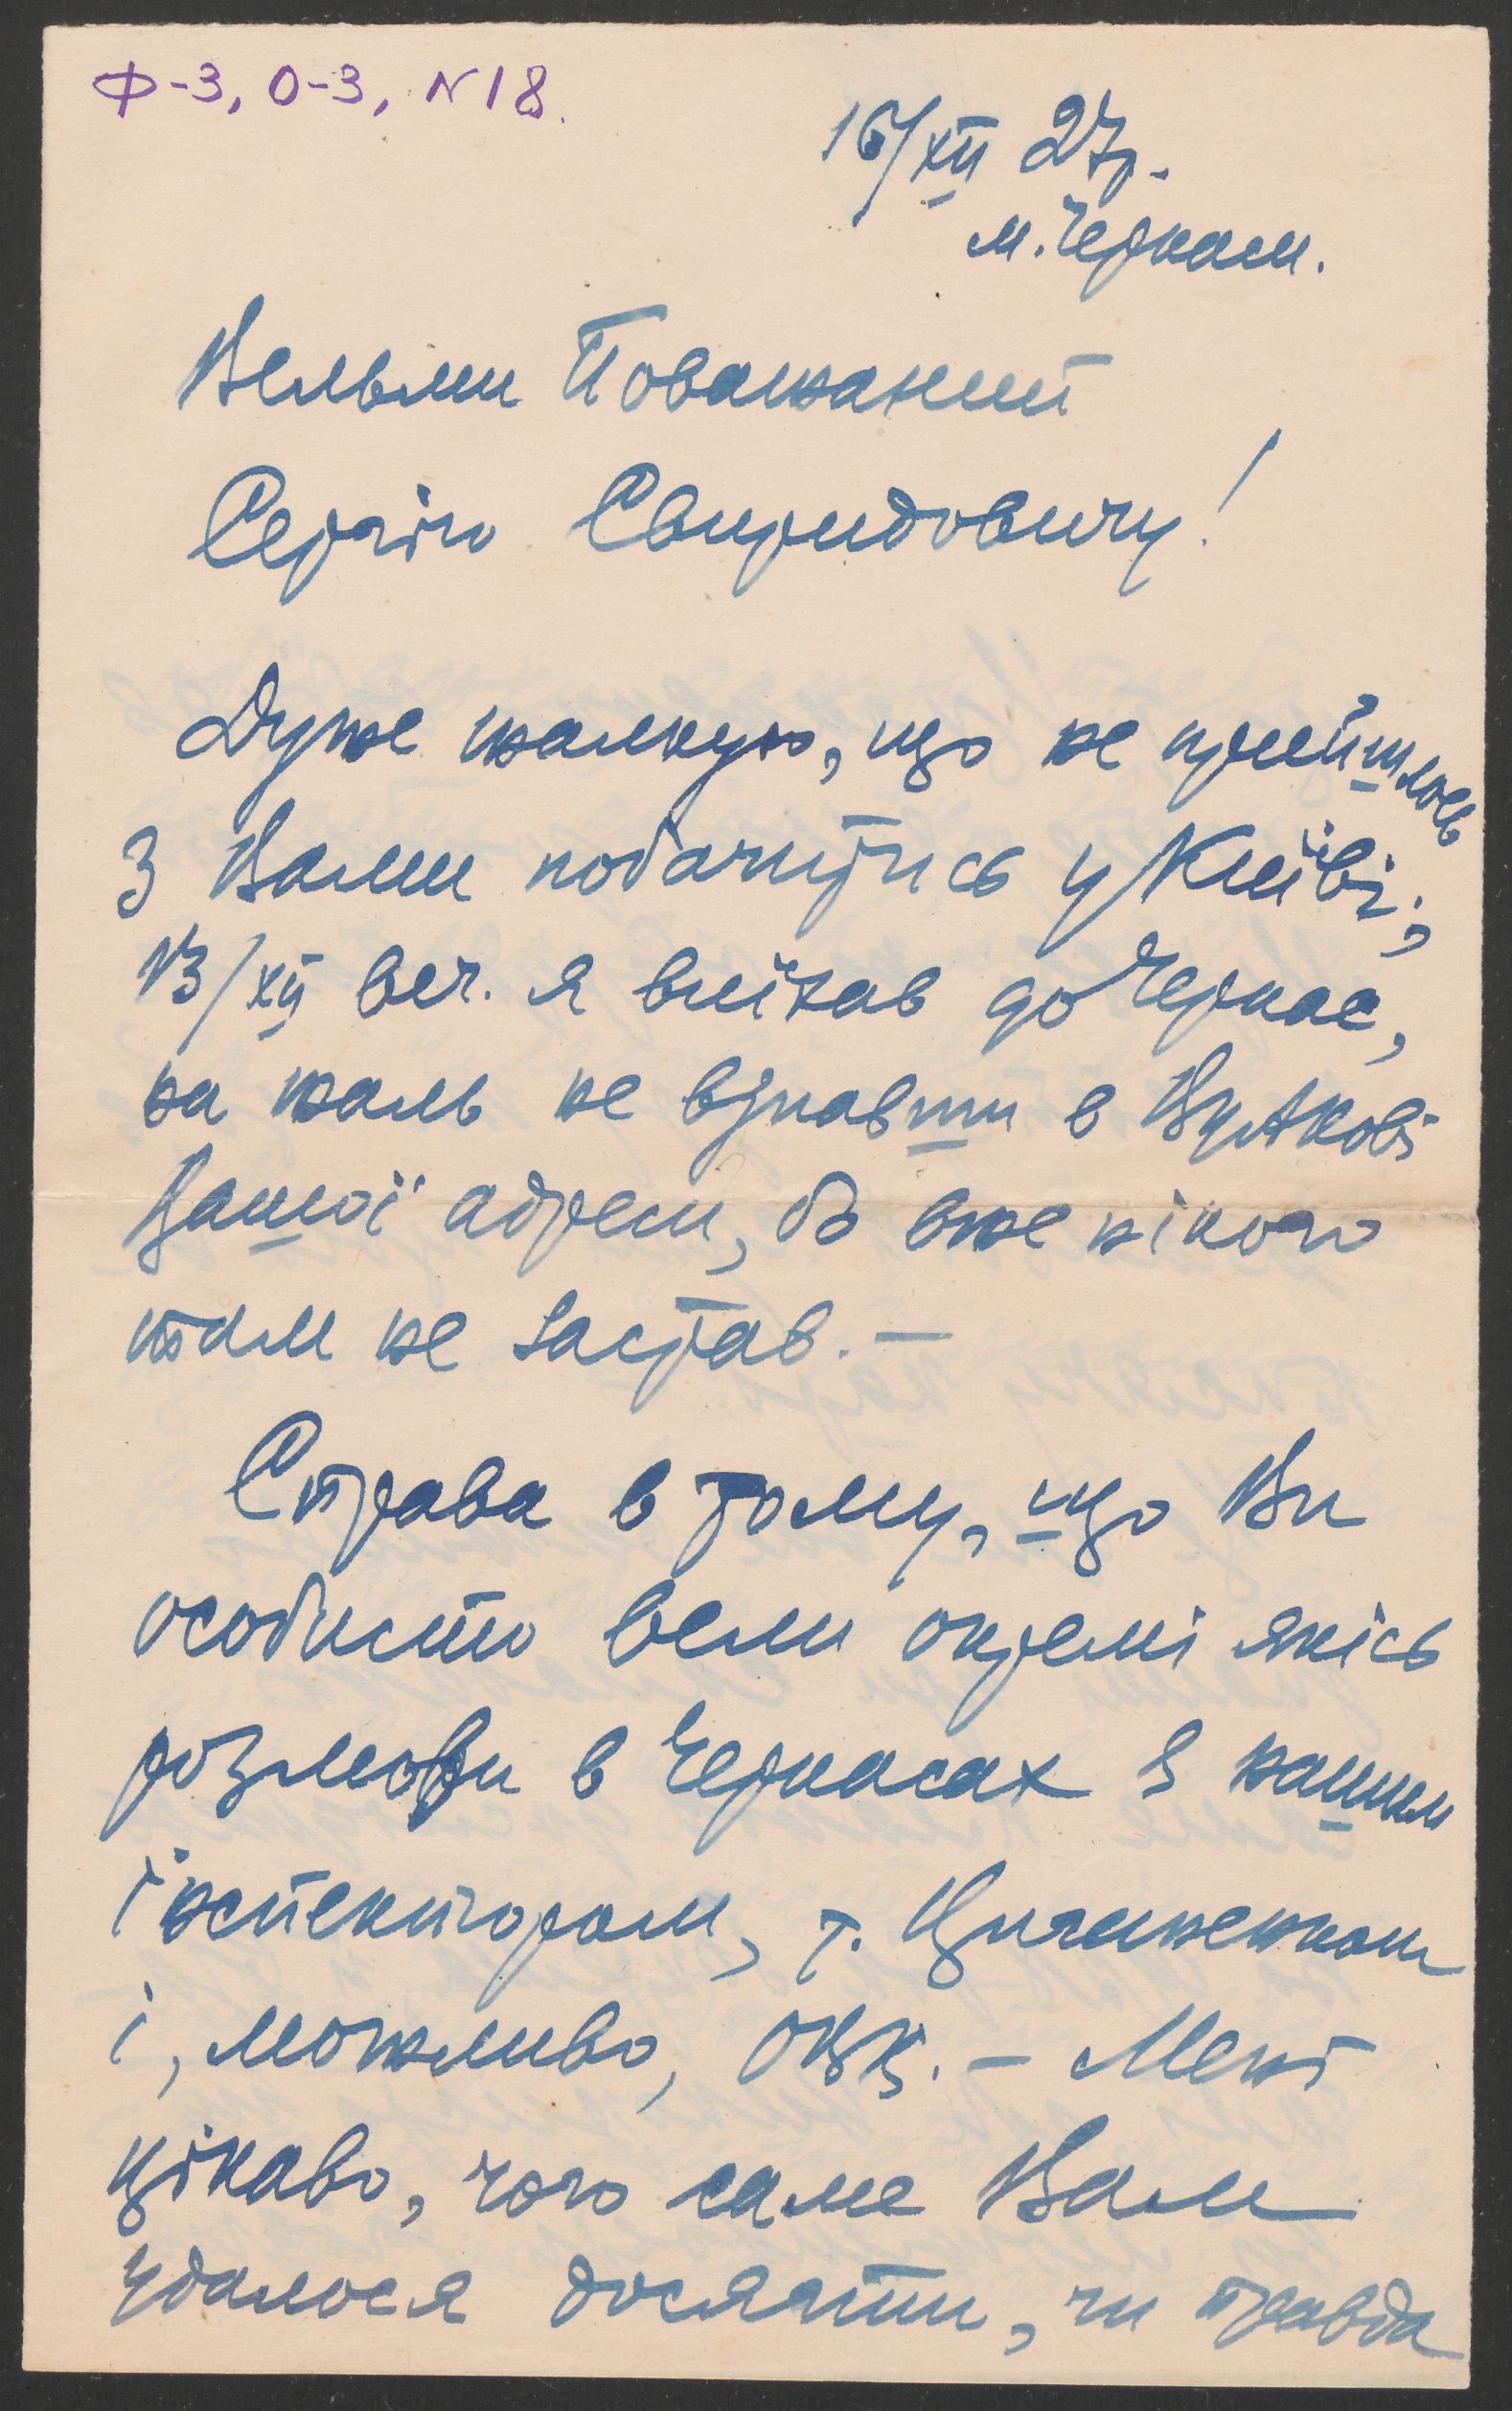 Ф-3, О-3, №18.
16/XII 27р.
м. Черкаси.
Вельми Поважаний
Сергію Свиридовичу!
Дуже жалкую, що не прийшлось
з Вами побачитись у Київі;
13/XII веч. я виїхав до Черкас,
на жаль не взнавши в
Вашої адреси, бо вже нікого
там не застав. —
Справа в тому, що Ви
особисто вели окремі якісь
розмови в Черкасах з нашим
інспектором, т. Циганенком
і, можливо, ОВК. — Мені
цікаво, чого саме Вам
удалося досягти, чи правда